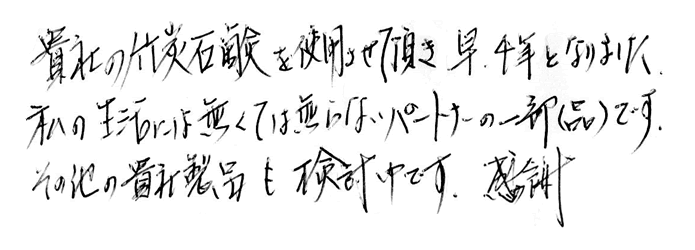 貴社の竹炭石鹸を使用させ頂き早、半年となりました.
私の生活には無くては無らないパートナーの一部(品)です.
その他の貴社製品も検討中です. 感謝